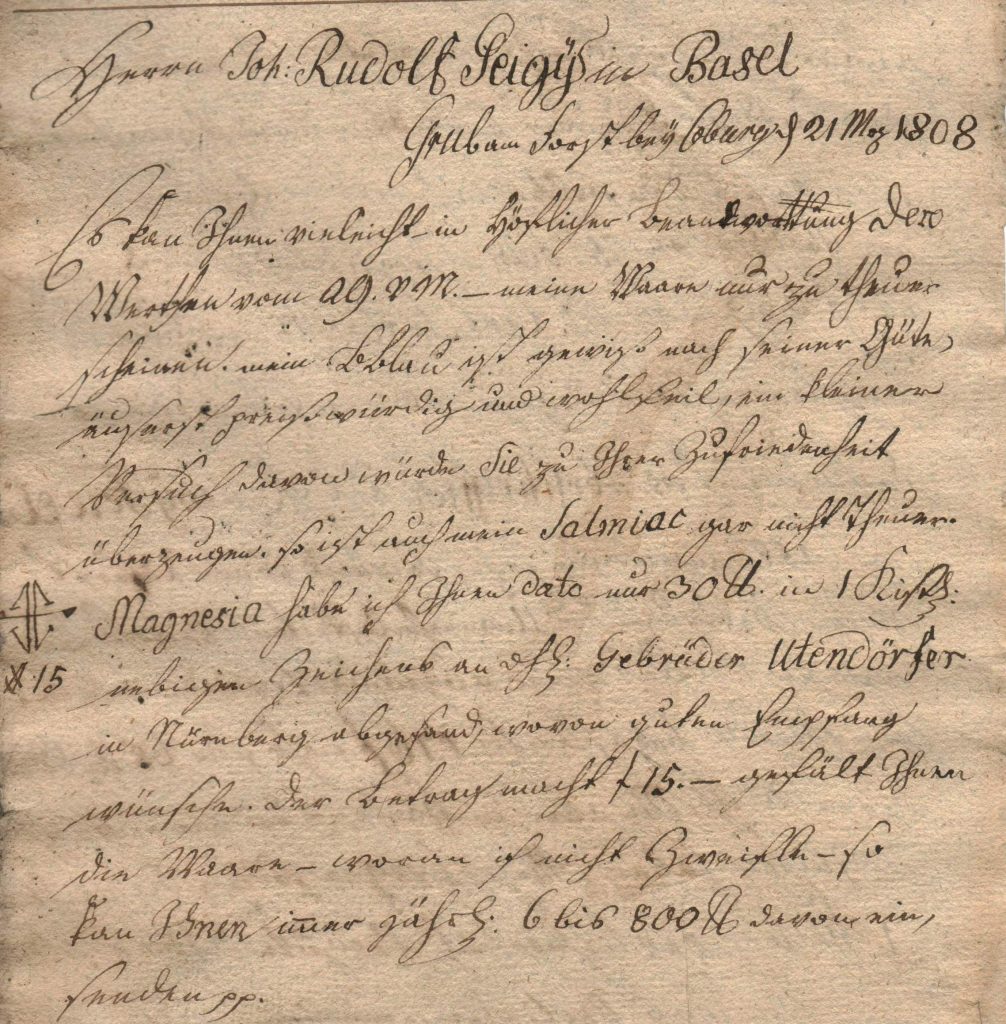 Herrn Joh: Rudolf Geigy in Basel
Grub am Forst bey Coburg d 21 Mrz 1808
Es kan Ihnen vieleicht in höflicher Beantworttung Dero
Werthen vom 29. v M. – meine Waare nur zu theuer
scheinen. mein Bblau ist gewiß nach seiner Güte,
äuserst preißwürdig und wohlfeil, ein kleiner
Versuch davon würde Sie zu Ihrer Zufriedenheit
überzeugen. so ist auch mein Salmiac gar nicht theuer.
Magnesia habe ich Ihnen dato nur 30 ℔. in 1 Kistl:
15 nebigen Zeichens an Gebrüder Utendörfer
in Nürnberg abgesand, wovon guten Empfang
wünsche. Der Betrag macht f 15.– gefält Ihnen
die Waare – woran ich nicht Zweifle – so
kan Ihnen im̄er jährl: 6 bis 800 ℔ davon ein,
senden pp.